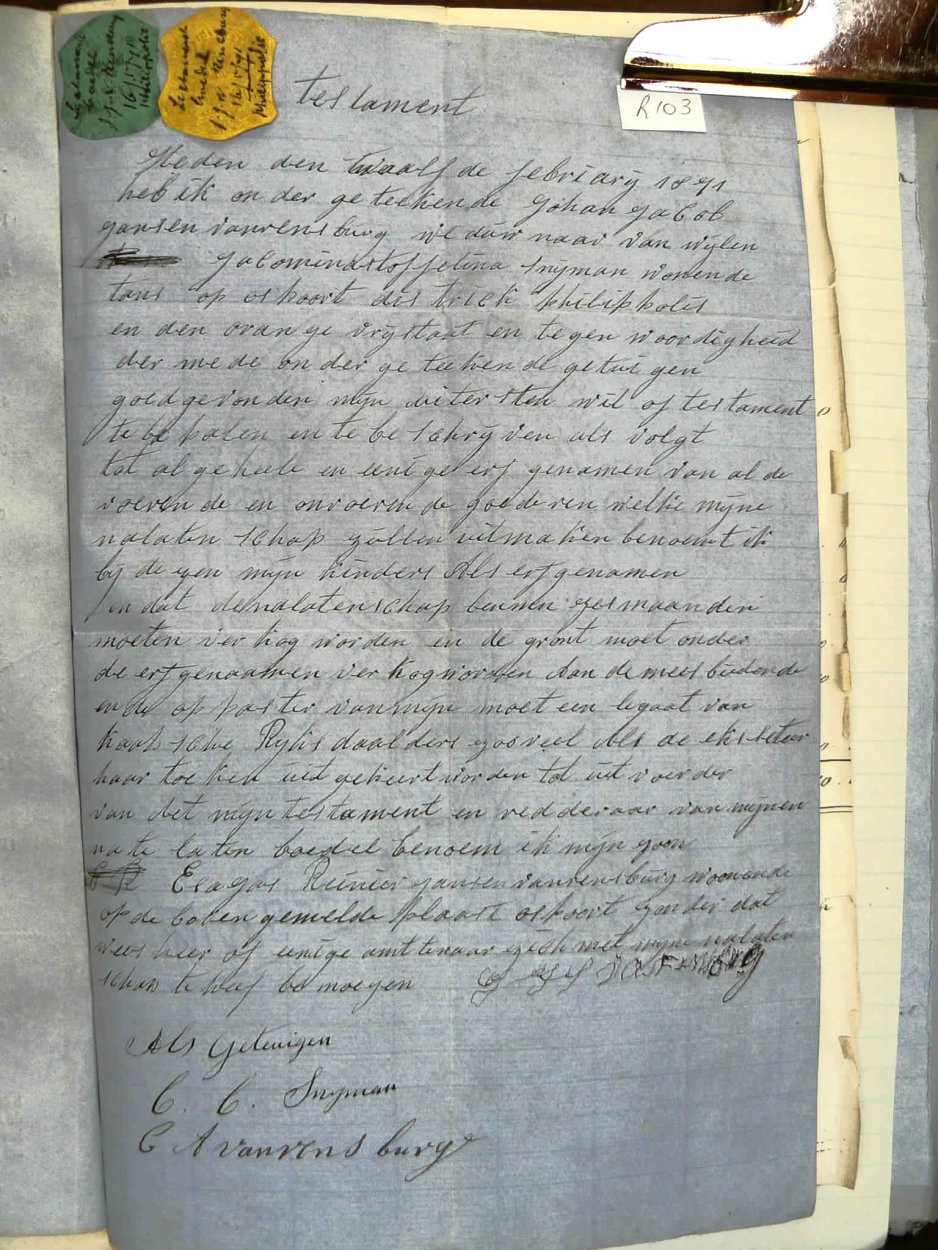 testament
R103
Heden den twaalf de febriarij 1871
heb ik on der ge teekende Johan Jacob
Jansen vanrensburg we daw naar van wijlen
Jacomina stoffelina Snyman wonende
tans op ospoort dis trick philippolis
en den oran ge vrystaat en te gen woordigheid
der me de on der ge teekende getui gen
goed gevonden mijn uiter sten wil of testament
te be palen en te be schrijven als volgt
tot al geheele en eeni ge erf genamen van al de
roeren de en onroeren de goede ren welke mijne
nalaten schap zullen uitmaken benoemt ik
bij de zen mijn kinders Als erfgenamen
in dat denalaten schap bennen zes maanden
moeten ver kog worden en de gront moet onder
de erfgenaamen ver kog worden Aan de mees biedende
en de op paster van mijn moet een legaat van
kaap sche Ryks daalders zooveel Als de eks
haar toe ken uit gekeert worden tot uit voer der
van het mijn testament en redderaar van mijnen
na te laten boedel benoem ik mijn zoon
Esagas Reinier Jansen vanrensburg woonende
op de boben gemelde plaast ospoort zonder dat
wees heer of eenige amttenaar zich met mijne nalaten
schap te heef be moegen
Als Geteuigen
C. C. Snyman
C A vanrens burg